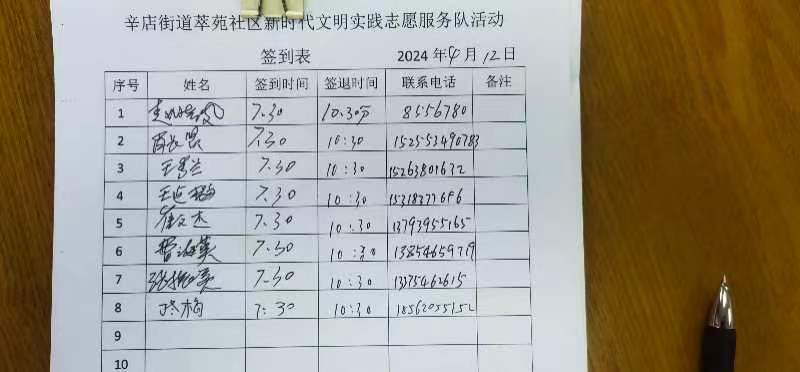 辛店街道萃苑社区新时代文明实践志愿服务队活动
签到表 2024年4月12日
序号 姓名 签到时间 签退时间 联系电话 备注
1 7.30 10.30 8556780
2 7.30 10:30
3 王秀兰 7.30 10:30 15263801632
4 7.30 10:30
5 崔文杰 7.30 10:30 13793955165
6 曹海英 7.30 10:30 13854659719
7 7.30 10:30 13375462615
8 7:30 10:30 18562055152
9
10